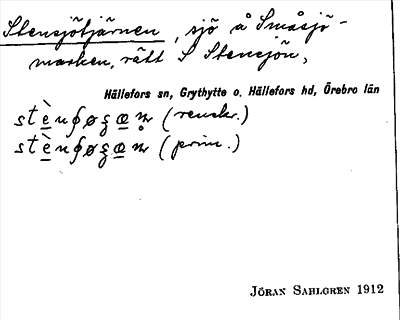 Stensjötjärnen, sjö å Småsjö-
marken, rätt S Stensjön,
Hällefors sn, Grythytte o. Hällefors hd, Örebro län
(renskr.)
(prim.)
JÖRAN SAHLGREN 1912